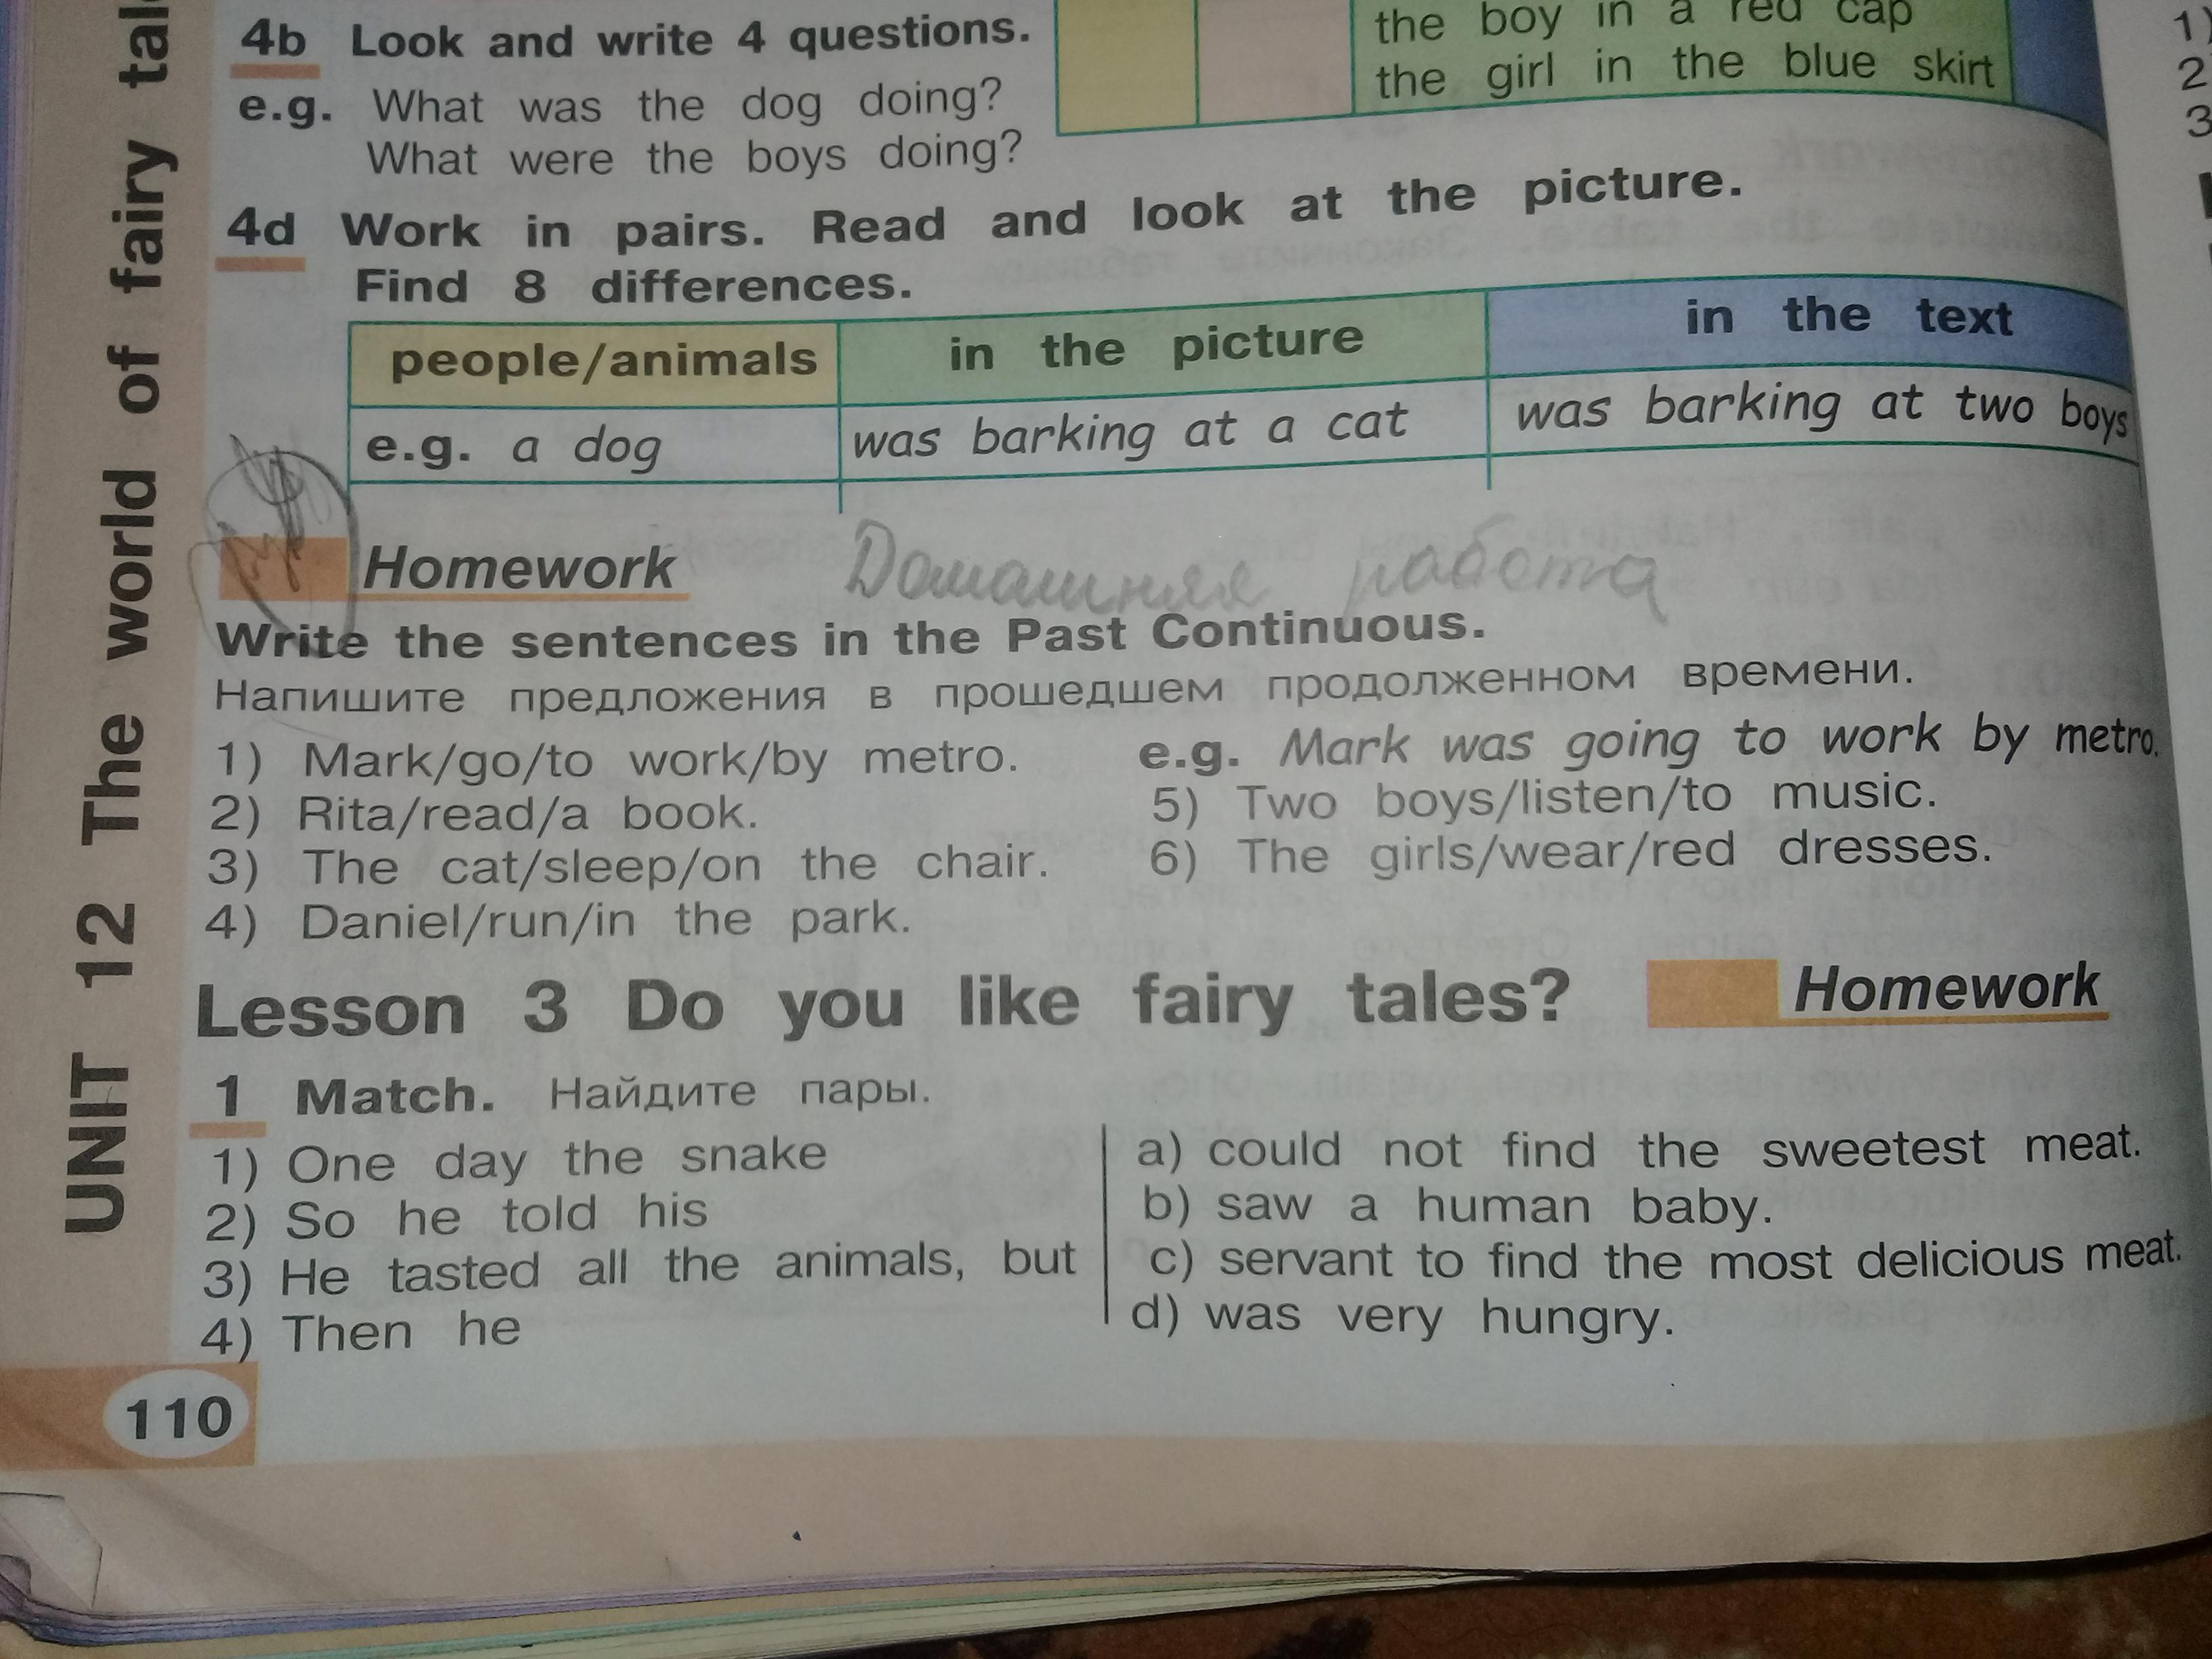 UNIT 12 The world of fairy
4b Look and write 4 questions.
e.g. What was the dog doing?
What were the boys doing?
the boy in a red cap
the girl in the blue skirt
4d Work in pairs. Read and look at the picture.
Find 8 differences.
people/animals in the picture in the text
e.g. a dog was barking at a cat was barking at two boys
Homework Домашняя работа
Write the sentences in the Past Continuous.
Напишите предложения в прошедшем продолженном времени.
1) Mark/go/to work/by metro. e.g. Mark was going to work by metro.
2) Rita/read/a book. 5) Two boys/listen/to music.
3) The cat/sleep/on the chair. 6) The girls/wear/red dresses.
4) Daniel/run/in the park.
Lesson 3 Do you like fairy tales? Homework
1 Match. Найдите пары.
1) One day the snake
2) So he told his
3) He tasted all the animals, but
4) Then he
a) could not find the sweetest meat.
b) saw a human baby.
c) servant to find the most delicious meat.
d) was very hungry.
110
1)
2
3